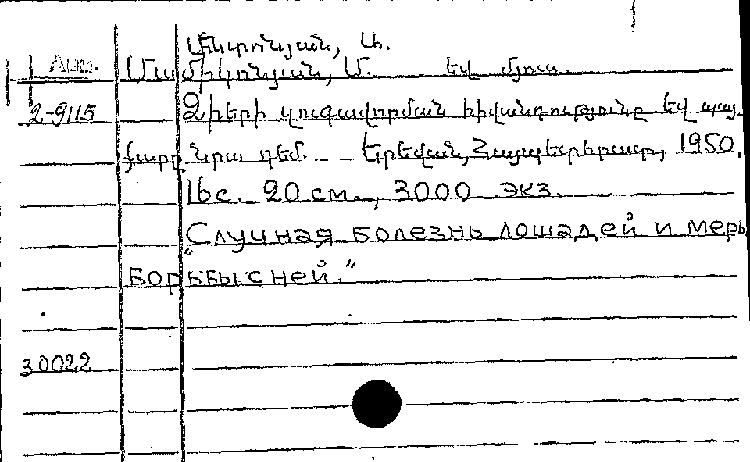 Անտոնյան, Ա.
Մամիկոնյան, Մ. եվ մյուս
2-9115 Ձիերի զուգավորման հիվանդությունը եվ պայ-
քարը նրա դեմ. Երեվան, Հայպետհրատ, 1950.
16с. 20 см., 3000 экз.
"Случная болезнь лошадей и меры
борьбы с ней."
30022